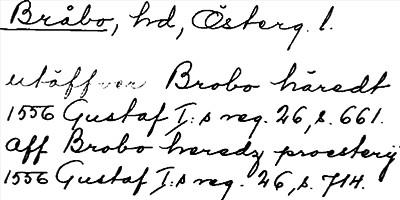 Bråbo, hd, Österg. l.
utåff vor Brobo häredt
1556 Gustaf I:s reg. 26, s. 661.
aff Brobo heredz prosterij
1556 Gustaf I:s reg. 26, s. 714.